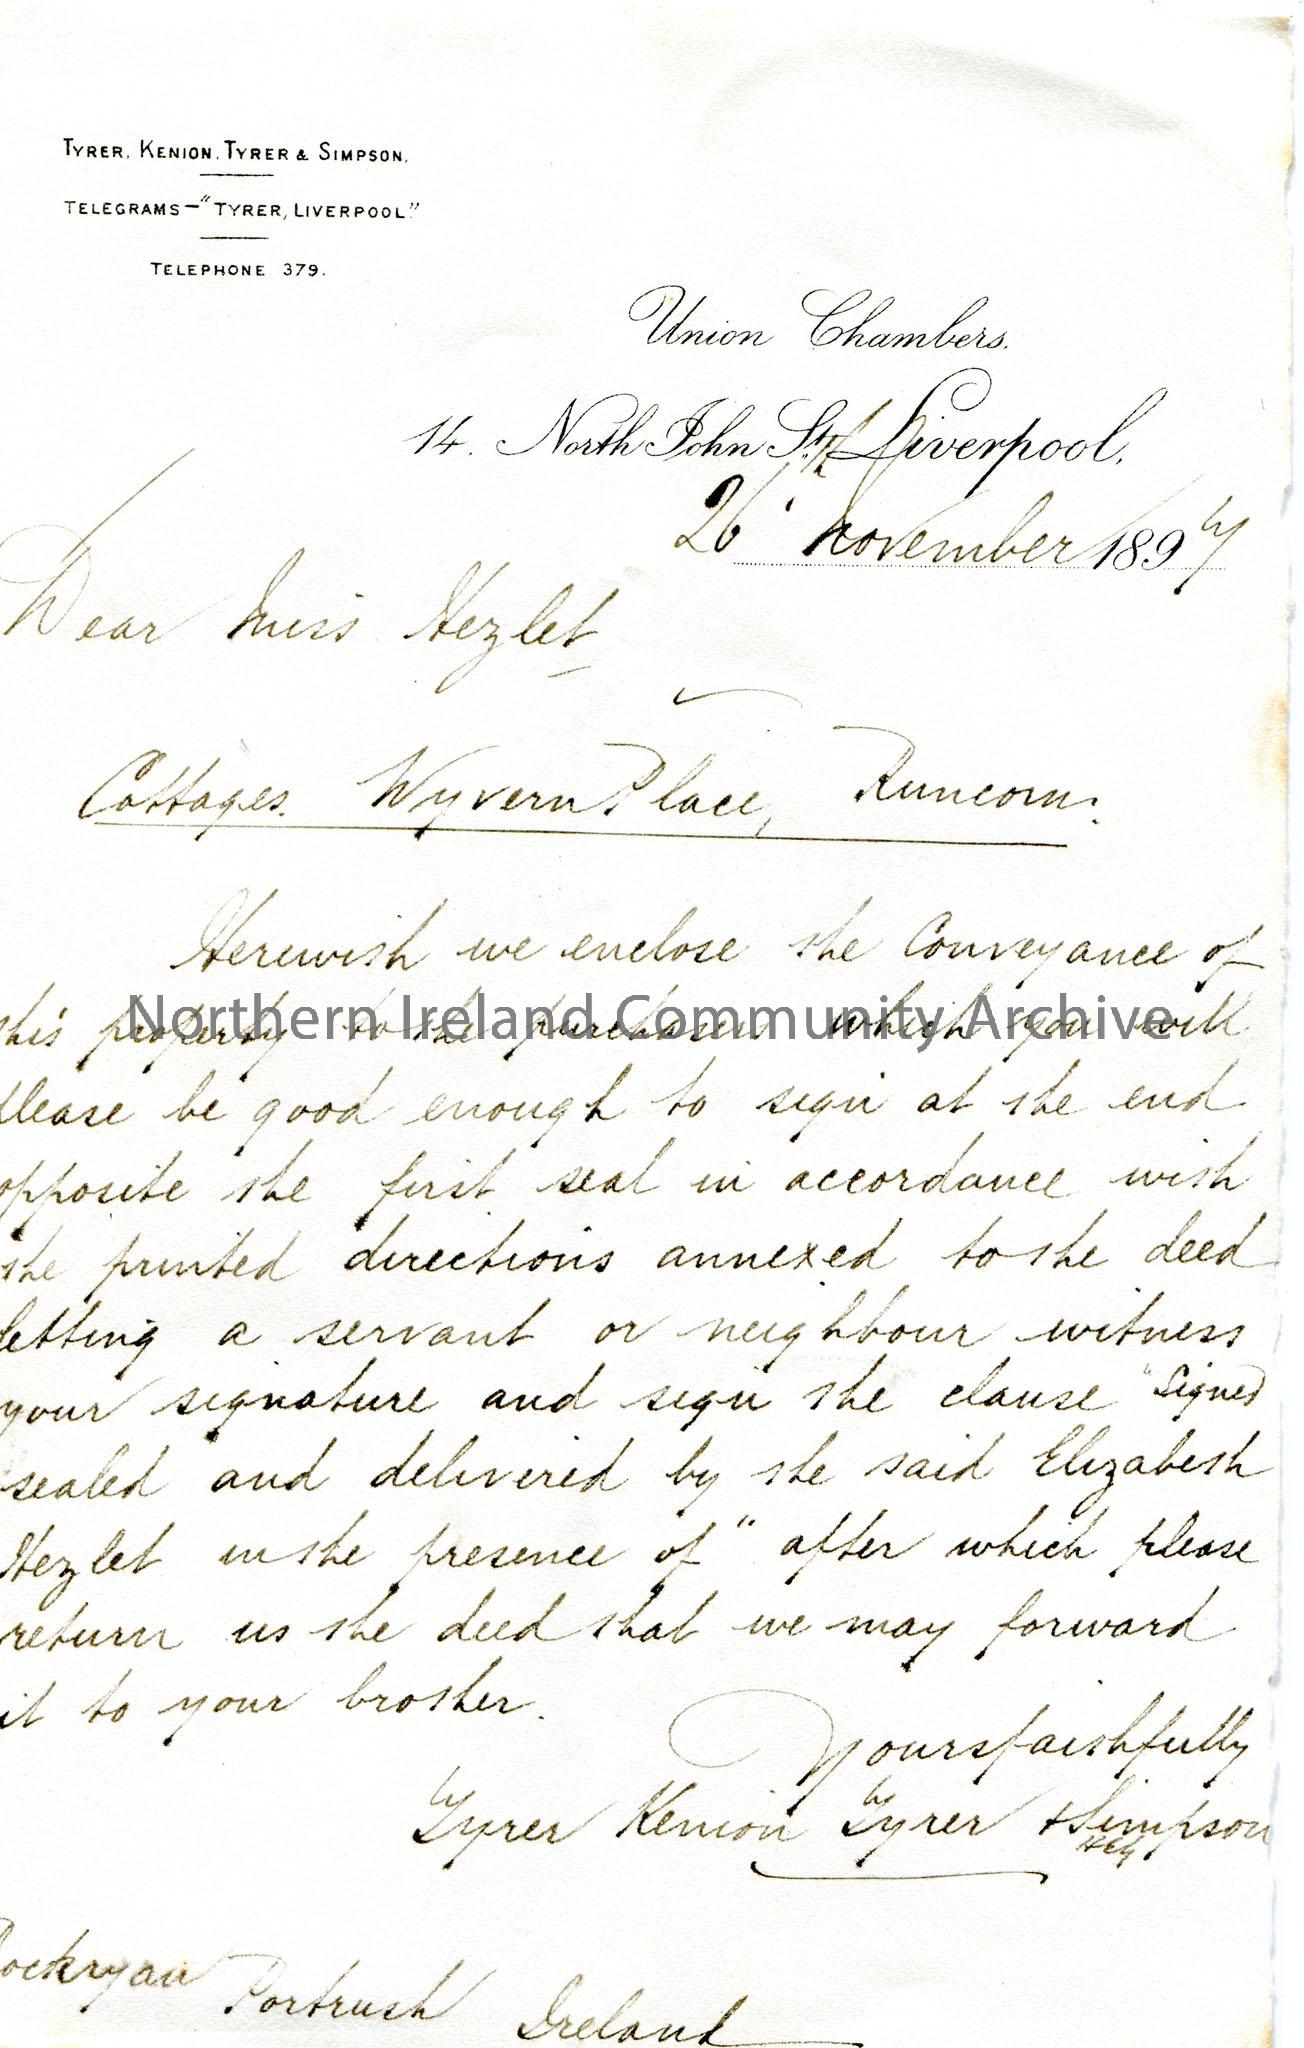 TYRER, KENION, TYRER & SIMPSON.
TELEGRAMS—"TYRER, LIVERPOOL"
TELEPHONE 379.
Union Chambers.
14. North John St. Liverpool,
26 November 1897
Dear Miss Hezlet
Cottages. Wyvern Place, Runcorn.
Herewith we enclose the Conveyance of
this property to the purchasers which you will
please be good enough to sign at the end
opposite the first seal in accordance with
the printed directions annexed to the deed
letting a servant or neighbour witness
your signature and sign the clause "Signed
sealed and delivered by the said Elizabeth
Hezlet in the presence of" after which please
return us the deed that we may forward
it to your brother.
Yours faithfully
Tyrer Kenion Tyrer & Simpson
Portrush Ireland
Northern Ireland Community Archive